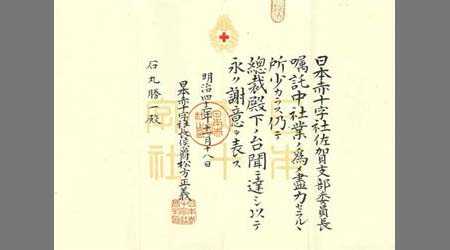 日本赤十字社佐賀支部委員長
囑託中社業ノ爲メ盡力セラルヽ
所少カラス仍テ
總裁殿下ノ台聞ニ達シ以テ
永ク謝意ヲ表ス
明治四十三年十一月十八日
日本赤十字社長侯爵松方正義
石丸勝一殿